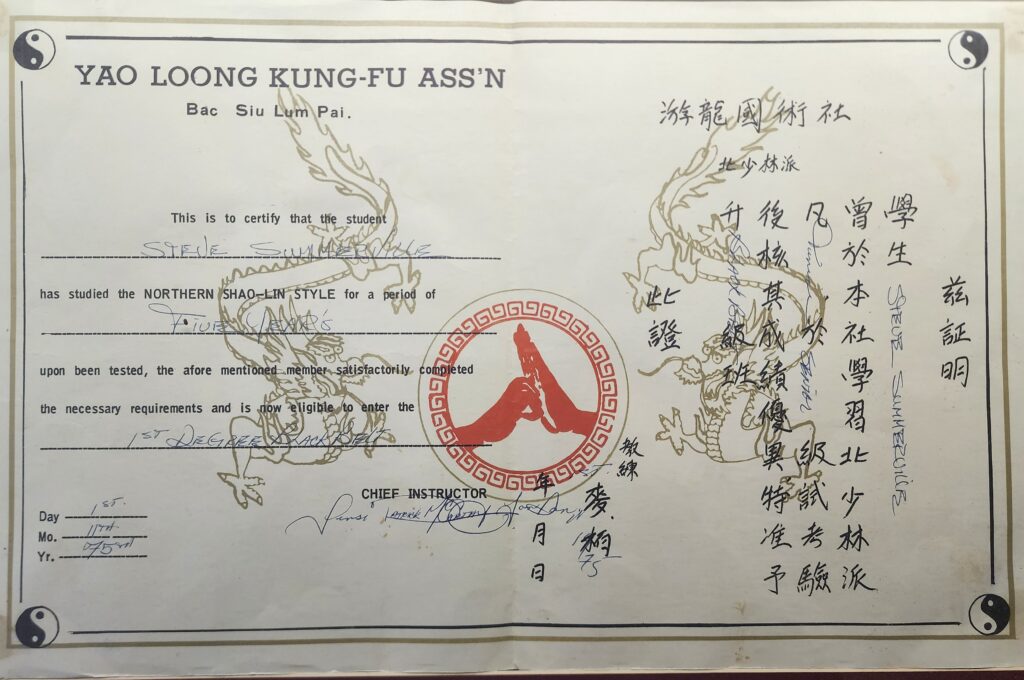 YAO LOONG KUNG-FU ASS'N
Bac Siu Lum Pai.
This is to certify that the student
STEVE SUMMERVILLE
has studied the NORTHERN SHAO-LIN STYLE for a period of
FIVE YEAR'S
upon been tested, the afore mentioned member satisfactorily completed
the necessary requirements and is now eligible to enter the
1ST DEGREE BLACK BELT
CHIEF INSTRUCTOR
Day 1ST.
Mo. 11TH
Yr. 75
游龍國術社
北少林派
茲証明
學生 STEVE SUMMERVILLE
曾於本社學習北少林派
凡 於 級試考驗
後核其成績優異特准予
升 BLACK BELT 級班
此證
教練
麥柏
年月日